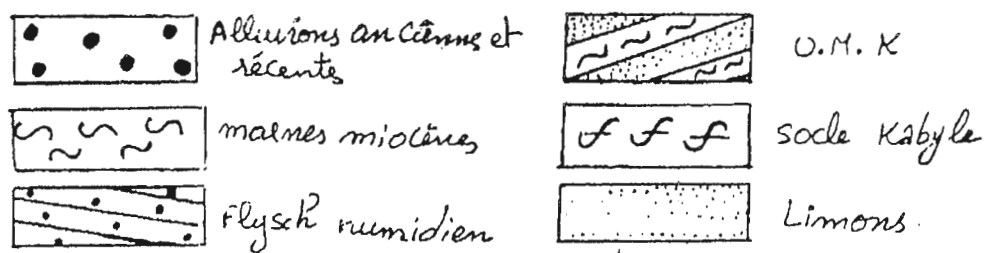 Alluvions anciènne et
récentes
marnes miocènes
Flysch numidien
U.M.K
socle Kabyle
Limons.